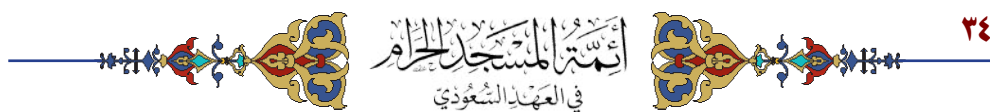 ٣٤
أَئِمَّةُ المَسْجِدِ الحَرَامِ
في العَهْدِ السُّعُودِيّ